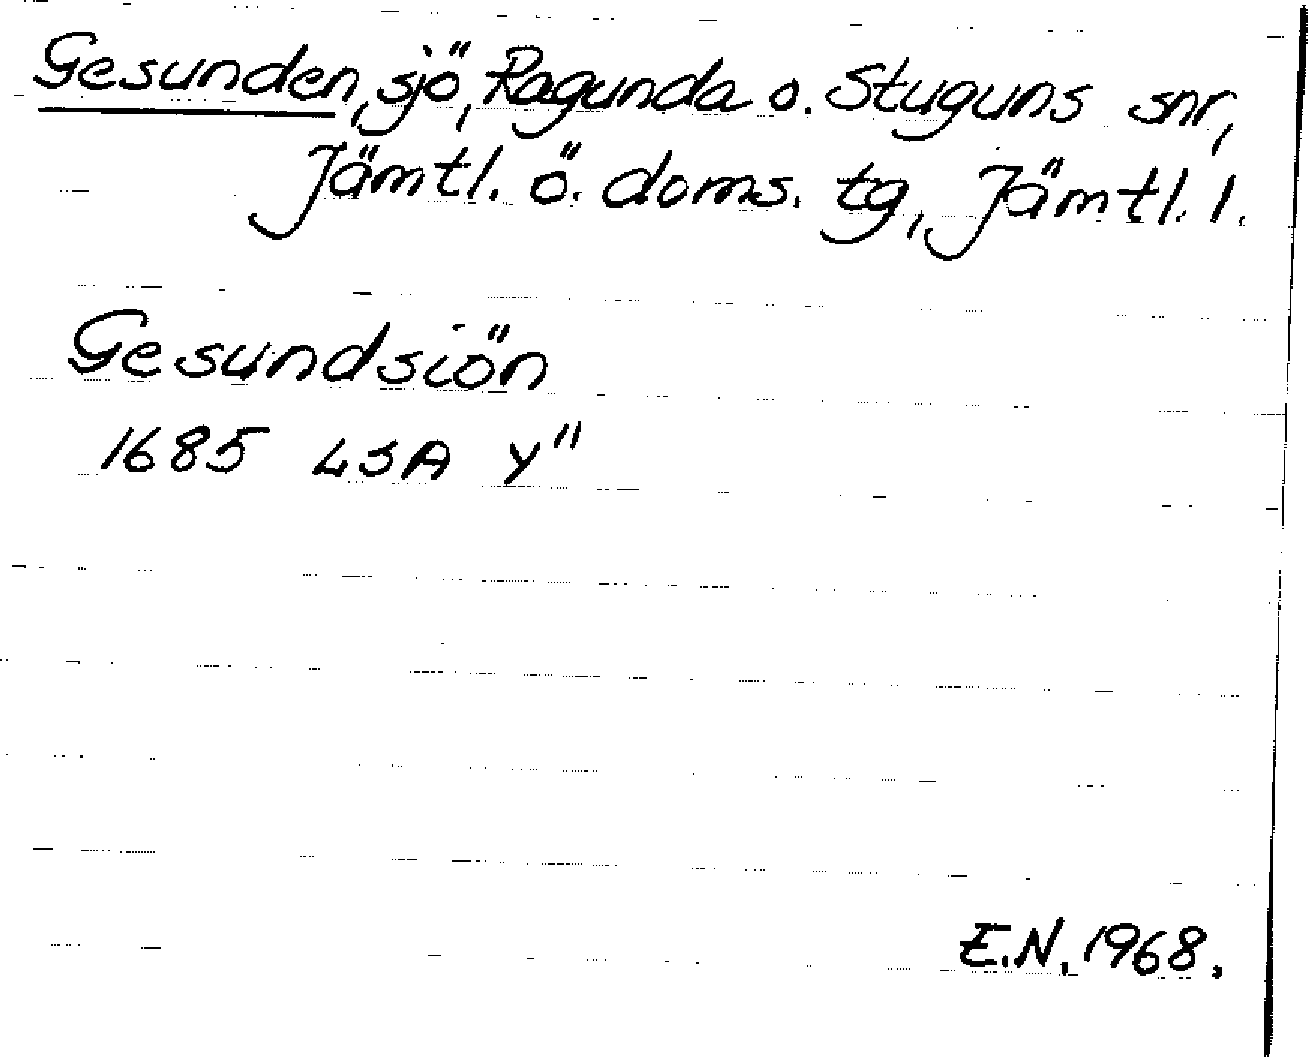 Gesunden, sjö, Ragunda o. Stuguns snr,
Jämtl. ö. doms. tg, Jämtl. l.
Gesundsiön
1685 LSA Y"
E.N. 1968.